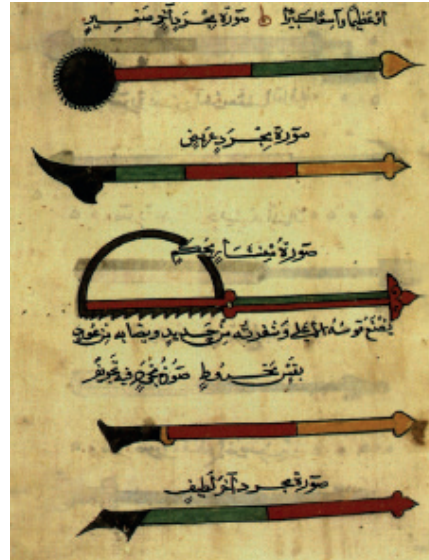 أو عظيما واسعا كبيرا صورة مجرد آخر صغير
صورة مجرد عريض
صورة منشار محكم
يصنع قوسه الأعلى وشفرته من حديد ونصابه من عود
بقس مخروط صورة مجرد فيه تجويف
صورة مجرد آخر لطيف